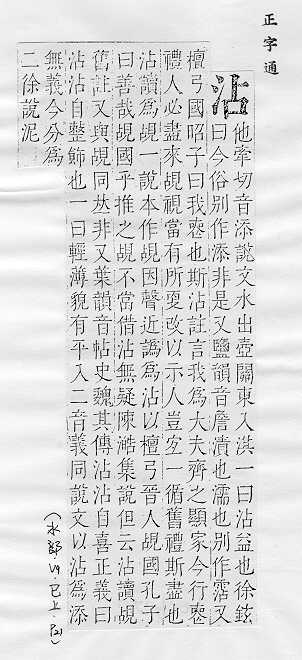 正字通
沾他牽切音添說文水出壺關東入淇一曰沾益也徐鉉
曰今俗別作添非是又鹽韻音詹漬也濡也別作霑又
檀弓國昭子曰我喪也斯沾註言我爲大夫齊之顯家今行喪
禮人必盡來覘視當有所更改以示人豈宜一循舊禮斯盡也
沾讀爲覘一說本作覘因聲近譌爲沾以檀弓晉人覘國孔子
曰善哉覘國乎推之覘不當借沾無疑陳澔集說但云沾讀覘
舊註又與覘同𠀤非又葉韻音帖史魏其傳沾沾自喜正義曰
沾沾自整飾也一曰輕薄貌有平入二音義同說文以沾爲添
無義今分爲
二徐說泥
(水部.19.已上